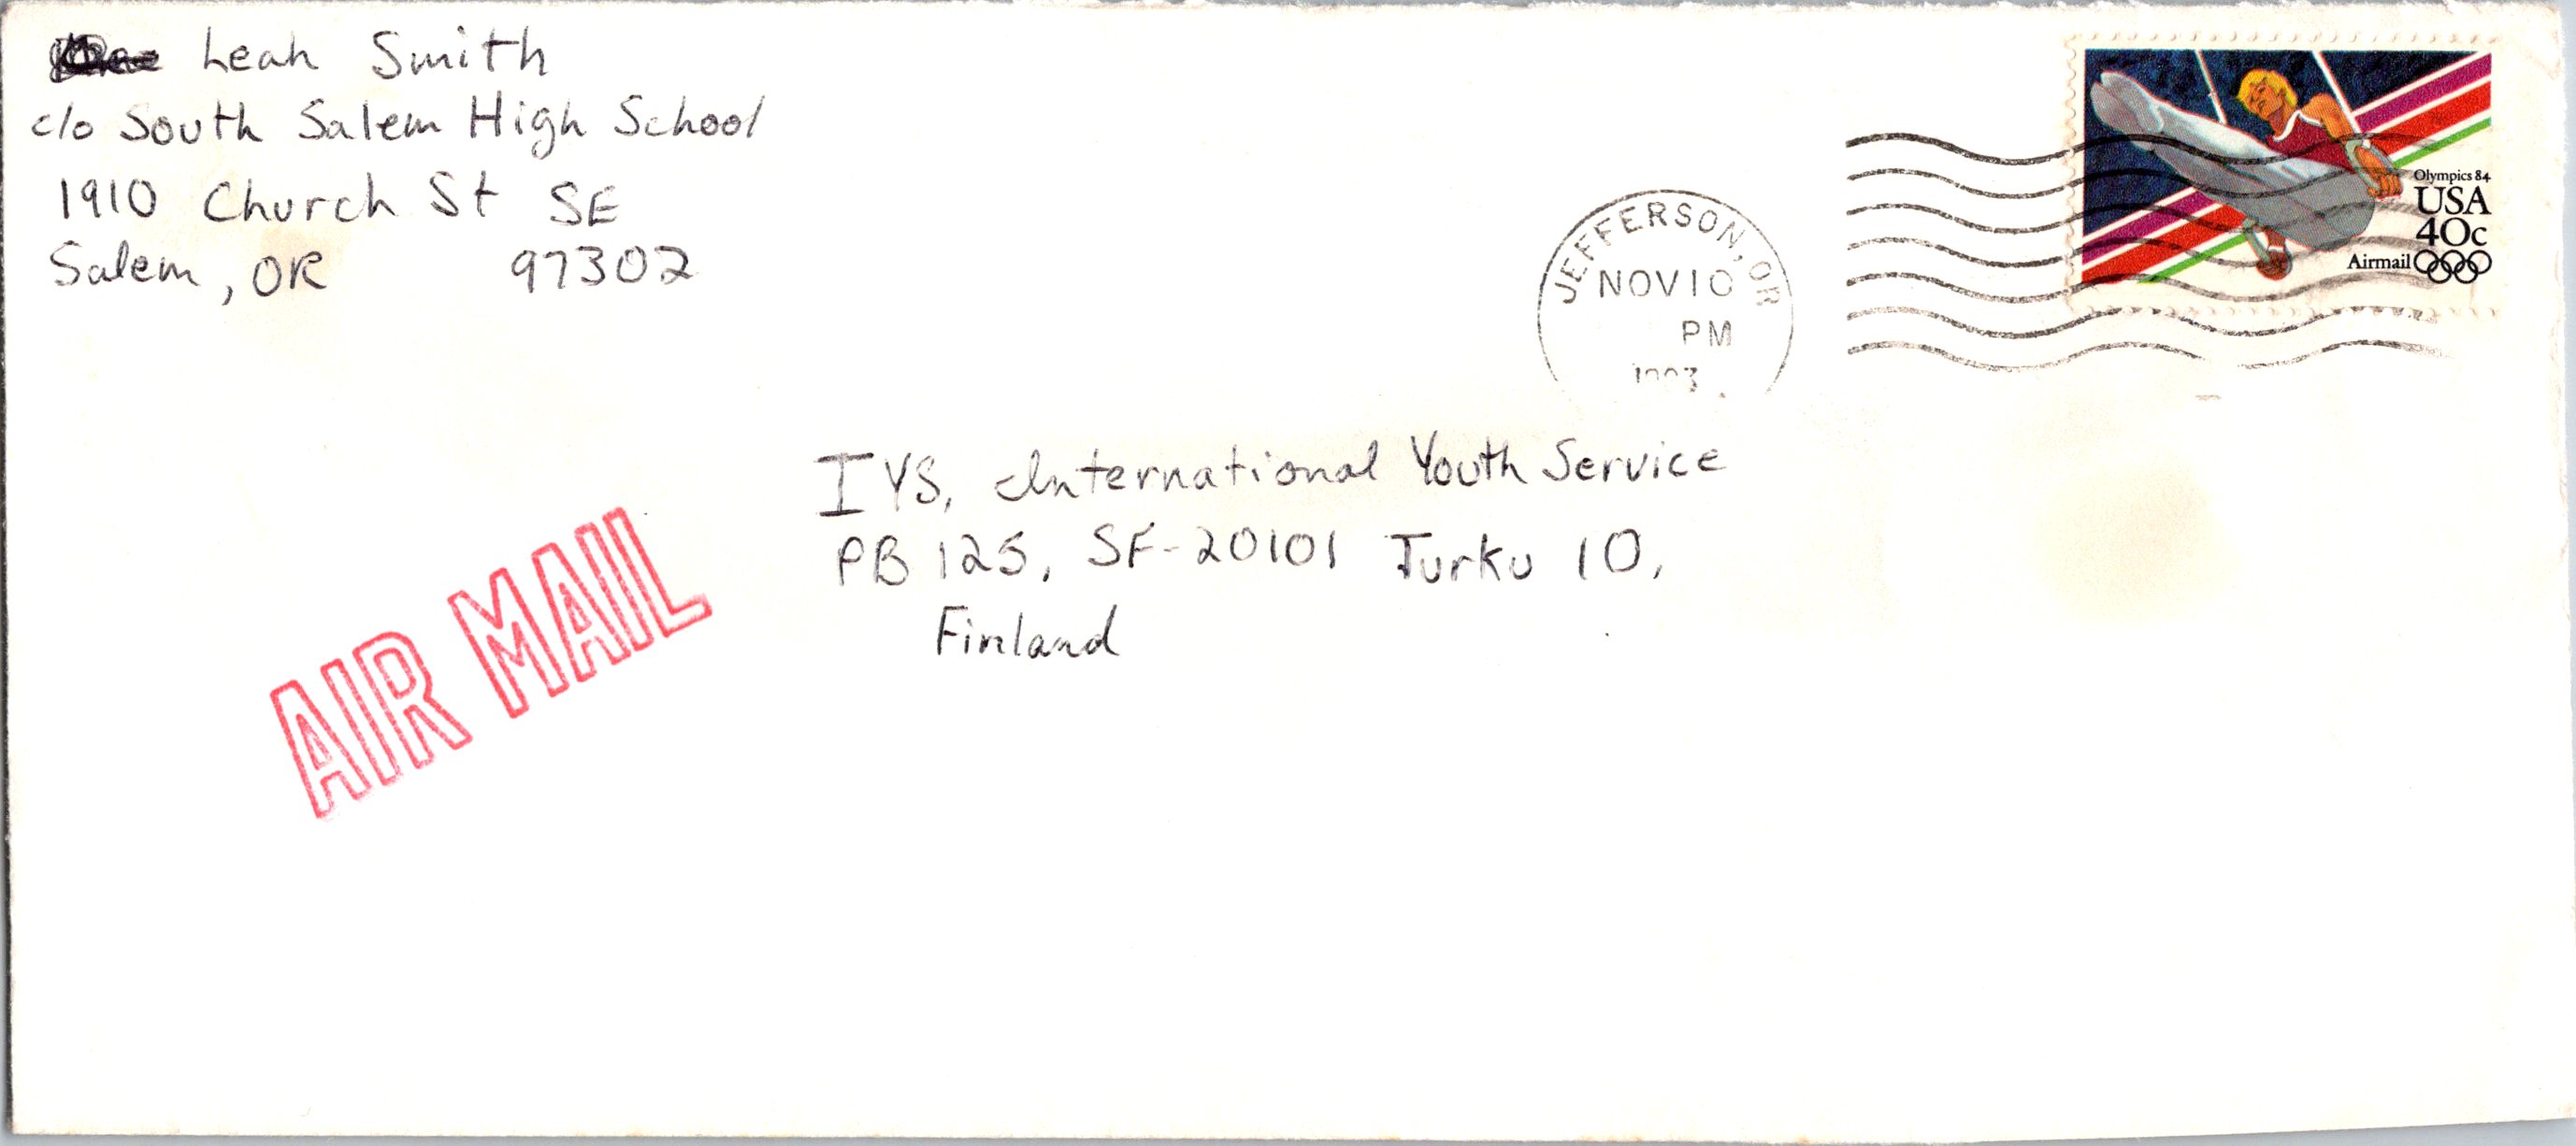 Leah Smith
c/o South Salem High School
1910 Church St SE
Salem, OR 97302
JEFFERSON, OR
NOV 10
PM
Olympics 84
USA
40c
Airmail
IYS, International Youth Service
PB 125, SF-20101 Turku 10,
Finland
AIR MAIL